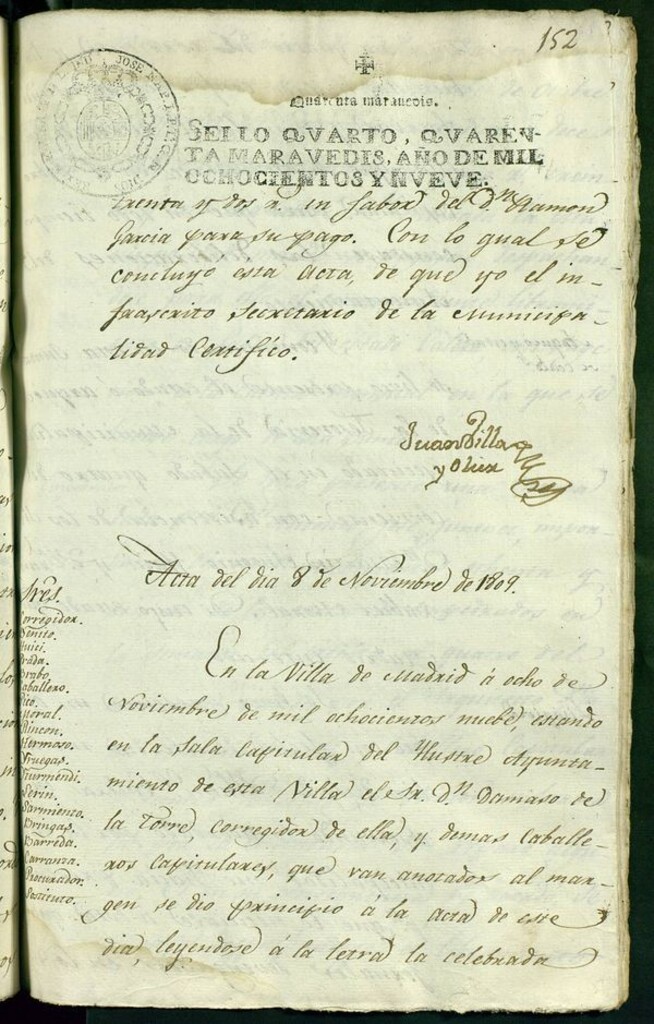 152
Quarenta maravedis.
SELLO QVARTO, QVAREN-
TA MARAVEDIS, AÑO DE MIL
OCHOCIENTOS Y NVEVE.
trenta y dos r.^s in fabor del d.^n Ramon
Garcia para su pago. Con lo qual se
concluyo esta acta, de que yo el in-
frascrito secretario de la Municipa-
lidad Certifico.
Juan Villa
y Olier
Acta del dia 8 de Noviembre de 1809.
Sres.
Corregidor.
Benito.
Huici.
Prada.
Brabo.
Caballero.
Rico.
Moral.
Rincon.
Hermoso.
Viruegas.
Yturmendi.
Perin.
Sarmiento.
Bringas.
Barreda.
Carranza.
Procurador.
Sustituto.
En la Villa de Madrid á ocho de
Noviembre de mil ochocientos nuebe, estando
en la sala Capitular del Ylustre Ayunta-
miento de esta Villa el Sr. D.^n Damaso de
la Torre, Corregidor de ella, y demas Caballe-
ros Capitulares, que van anotados al mar-
gen se dio principio á la acta de este
dia, leyendose á la letra la celebrada